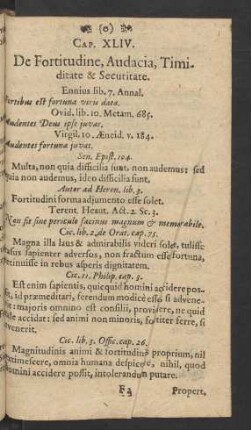 (o)
CAP. XLIV.
De Fortitudine, Audacia, Timi-
ditate & Securitate.
Ennius lib. 7. Annal.
Fortibus est fortuna viris data.
Ovid. lib. 10. Metam. 685.
Audentes Deus ipse juvat.
Virgil. 10. Æneid. v. 184.
Audentes fortuna juvat.
Sen. Epist. 104.
Multa, non quia difficilia sunt, non audemus; sed
quia non audemus, ideo difficilia sunt.
Autor ad Heren. lib. 3.
Fortitudini forma adjumento esse solet.
Terent. Heaut. Act. 2. Sc. 3.
Non fit sine periculo facinus magnum & memorabile.
Cic. lib. 2. de Orat. cap. 75.
Magna illa laus & admirabilis videri solet, tulisse
casus sapienter adversos, non fractum esse fortuna,
retinuisse in rebus asperis dignitatem.
Cic. 11. Philip. cap. 3.
Est enim sapientis, quicquid homini accidere pos-
se, id præmeditari, ferendum modicè esse, si advene-
rit: majoris omnino est consilii, providere, ne quid
tale accidat: sed animi non minoris, fortiter ferre, si
evenerit.
Cic. lib. 3. Offic. cap. 26.
Magnitudinis animi & fortitudinis proprium, nil
extimescere, omnia humana despicere, nihil, quod
homini accidere possit, intolerandum putare.
Propert.